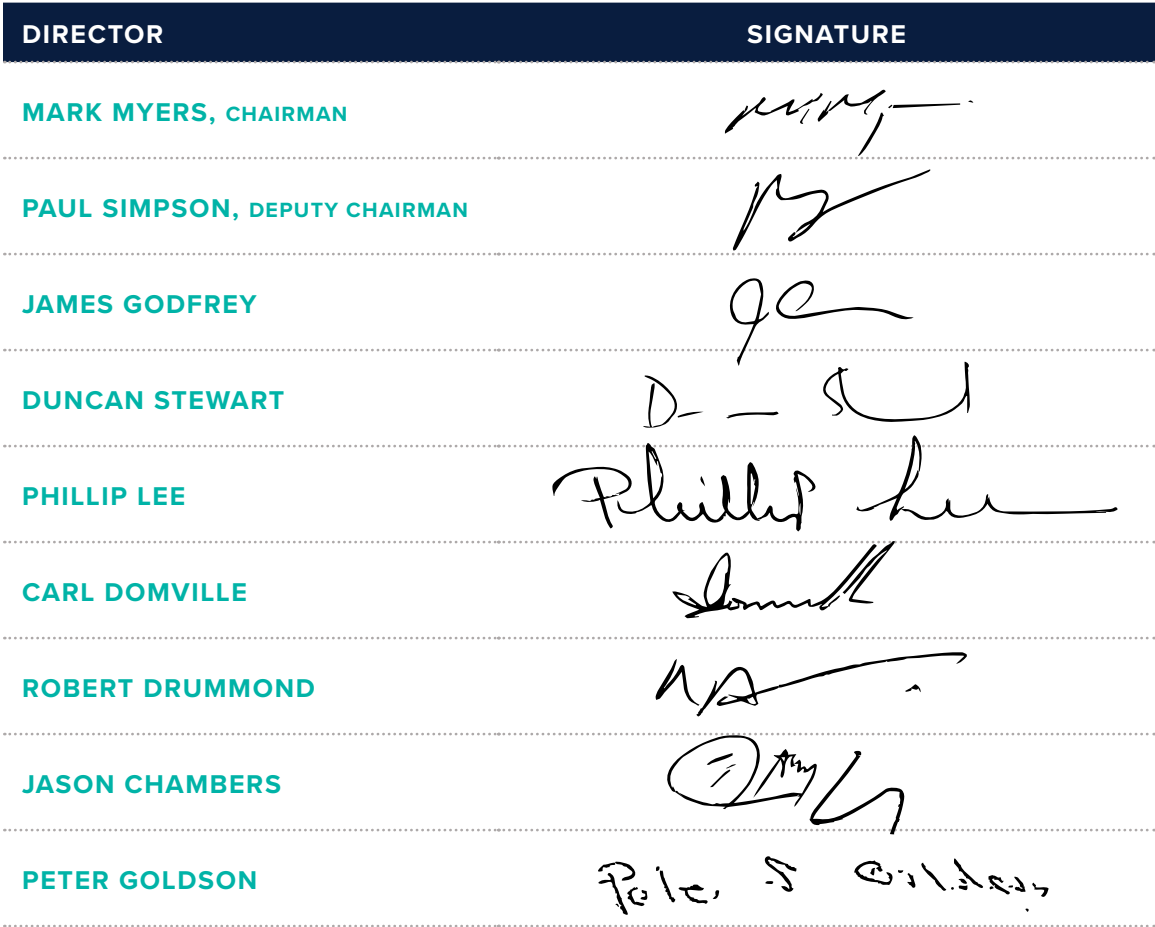 DIRECTOR SIGNATURE
MARK MYERS, CHAIRMAN
PAUL SIMPSON, DEPUTY CHAIRMAN
JAMES GODFREY
DUNCAN STEWART
PHILLIP LEE Phillip Lee
CARL DOMVILLE
ROBERT DRUMMOND
JASON CHAMBERS
PETER GOLDSON